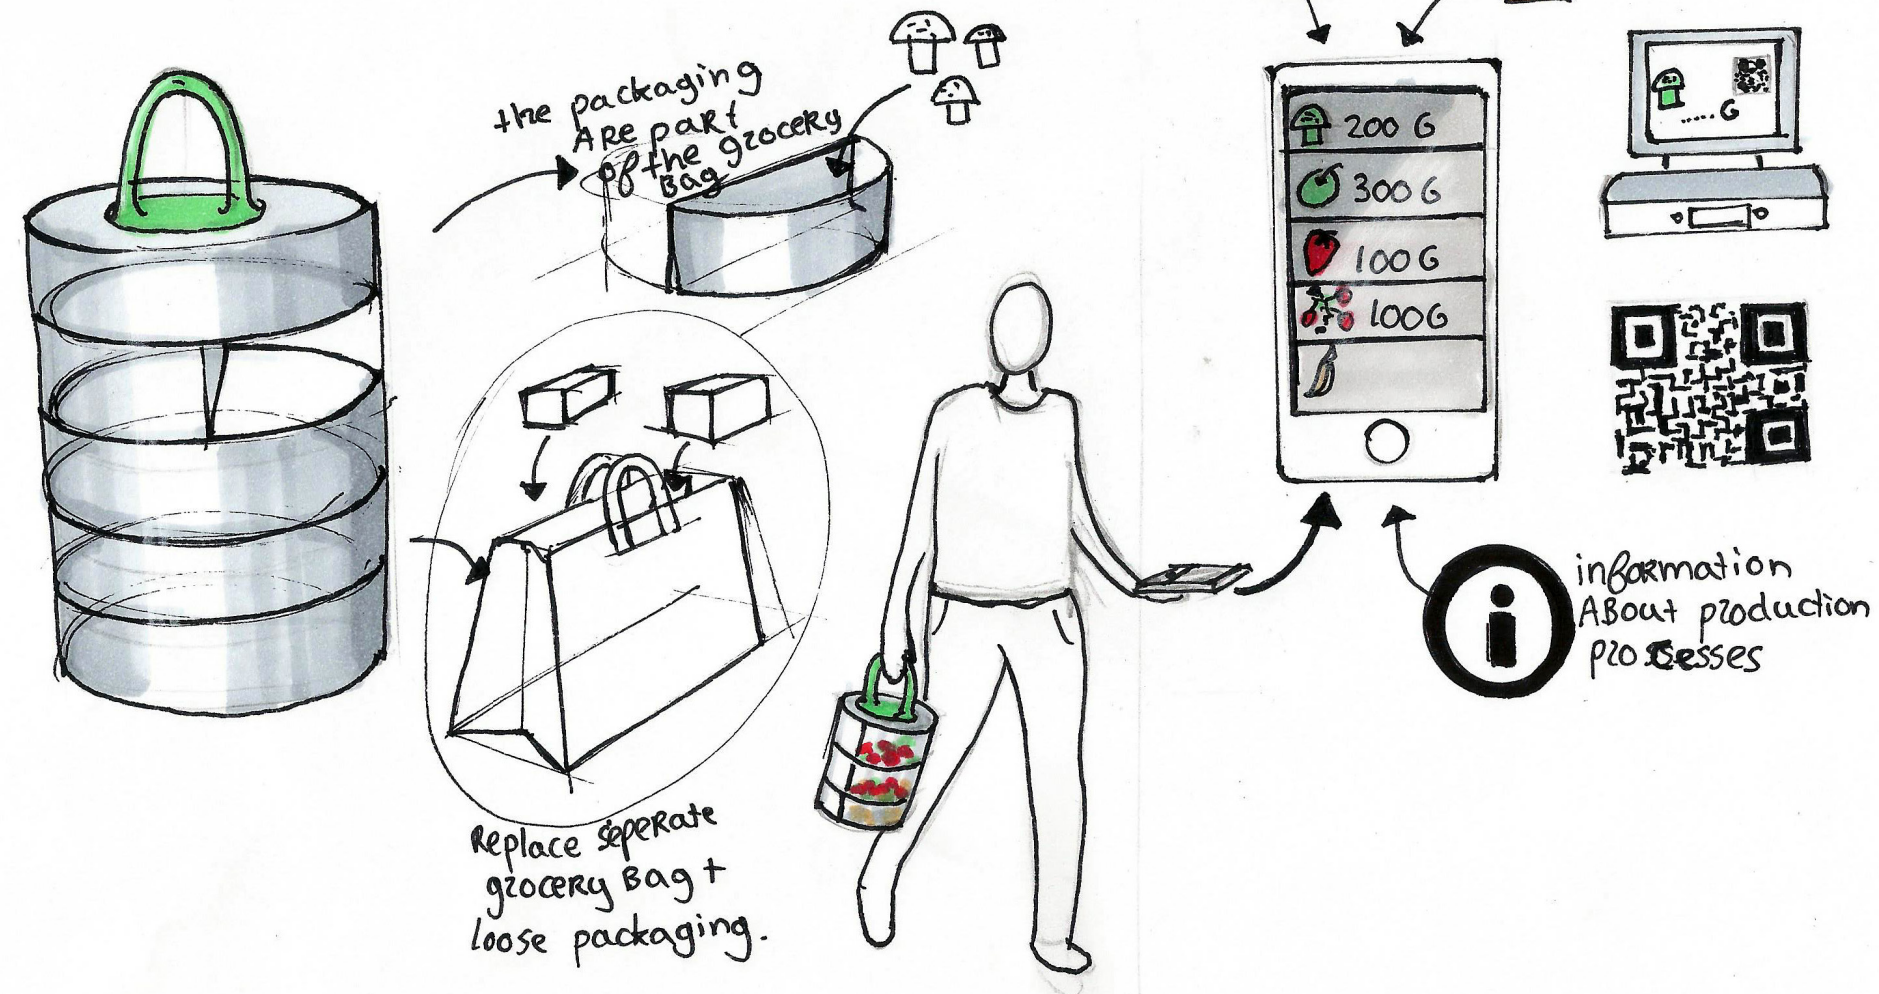 the packaging
ARE part
of the grocery
Bag
Replace seperate
grocery Bag +
loose packaging.
200 G
300 G
100 G
100 G
.....G
information
ABout production
processes